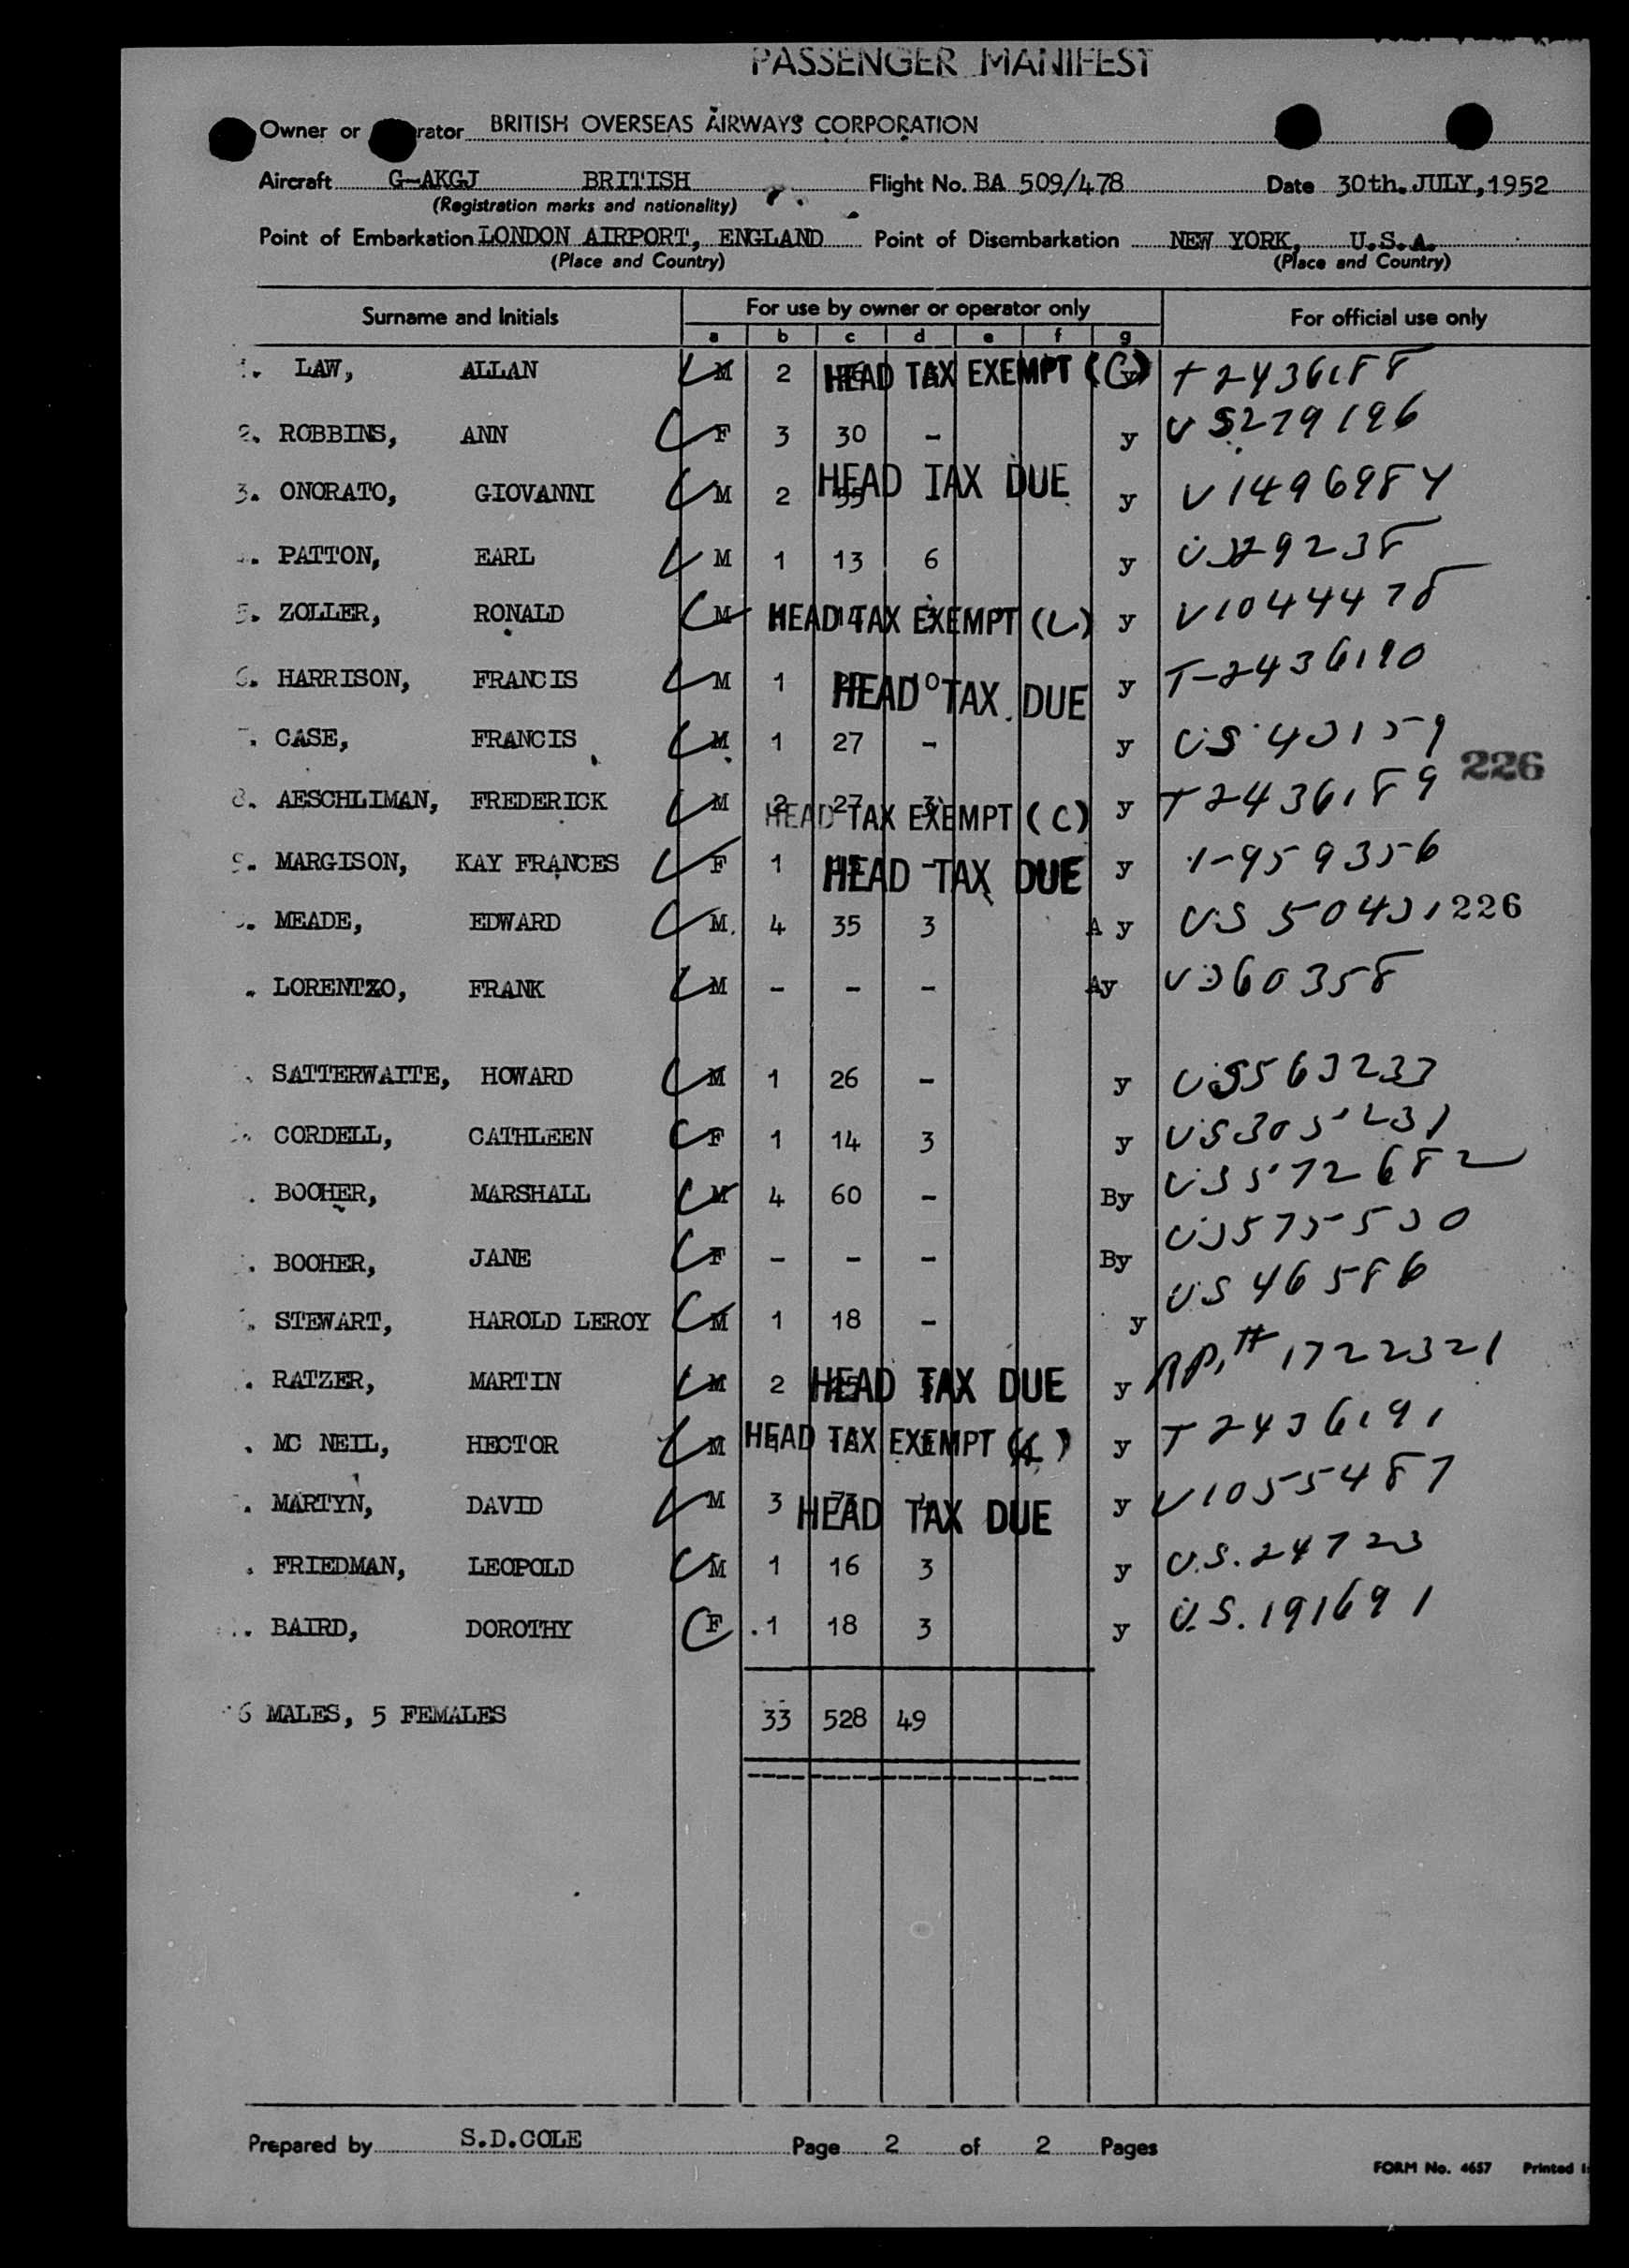 PASSENGER MANIFEST
Owner or rator BRITISH OVERSEAS AIRWAYS CORPORATION
Aircraft G-AKGJ BRITISH Flight No. BA 509/478 Date 30th. JULY, 1952
(Registration marks and nationality)
Point of Embarkation LONDON AIRPORT, ENGLAND Point of Disembarkation NEW YORK, U.S.A.
(Place and Country) (Place and Country)
Surname and Initials For use by owner or operator only For official use only
a b c d e f g
LAW, ALLAN M 2 HEAD TAX EXEMPT (C) y T2436188
2. ROBBINS, ANN F 3 30 - y US279196
3. ONORATO, GIOVANNI M 2 35 HEAD TAX DUE y V1496984
PATTON, EARL M 1 13 6 y
5. ZOLLER, RONALD M HEAD TAX EXEMPT (L) y V1044478
6. HARRISON, FRANCIS M 1 HEAD TAX DUE y T-2436190
CASE, FRANCIS M 1 27 - y US 43159
226
8. AESCHLIMAN, FREDERICK M 2 27 3 HEAD TAX EXEMPT (C) y T2436189
9. MARGISON, KAY FRANCES F 1 HEAD TAX DUE y
MEADE, EDWARD M. 4 35 3 A y US 50431 226
LORENTZO, FRANK M - - - Ay
SATTERWAITE, HOWARD M 1 26 - y US563233
CORDELL, CATHLEEN F 1 14 3 y US305231
BOOHER, MARSHALL M 4 60 - By US572682
BOOHER, JANE F - - - By US575530
STEWART, HAROLD LEROY M 1 18 - y US 46586
RATZER, MARTIN M 2 HEAD TAX DUE y RP.# 1722321
MC NEIL, HECTOR M HEAD TAX EXEMPT y T2436191
MARTYN, DAVID M 3 HEAD TAX DUE y V1055487
FRIEDMAN, LEOPOLD M 1 16 3 y U.S. 24723
BAIRD, DOROTHY F .1 18 3 y U.S. 191691
6 MALES, 5 FEMALES 33 528 49
Prepared by S.D.COLE Page 2 of 2 Pages
FORM No. 4657 Printed